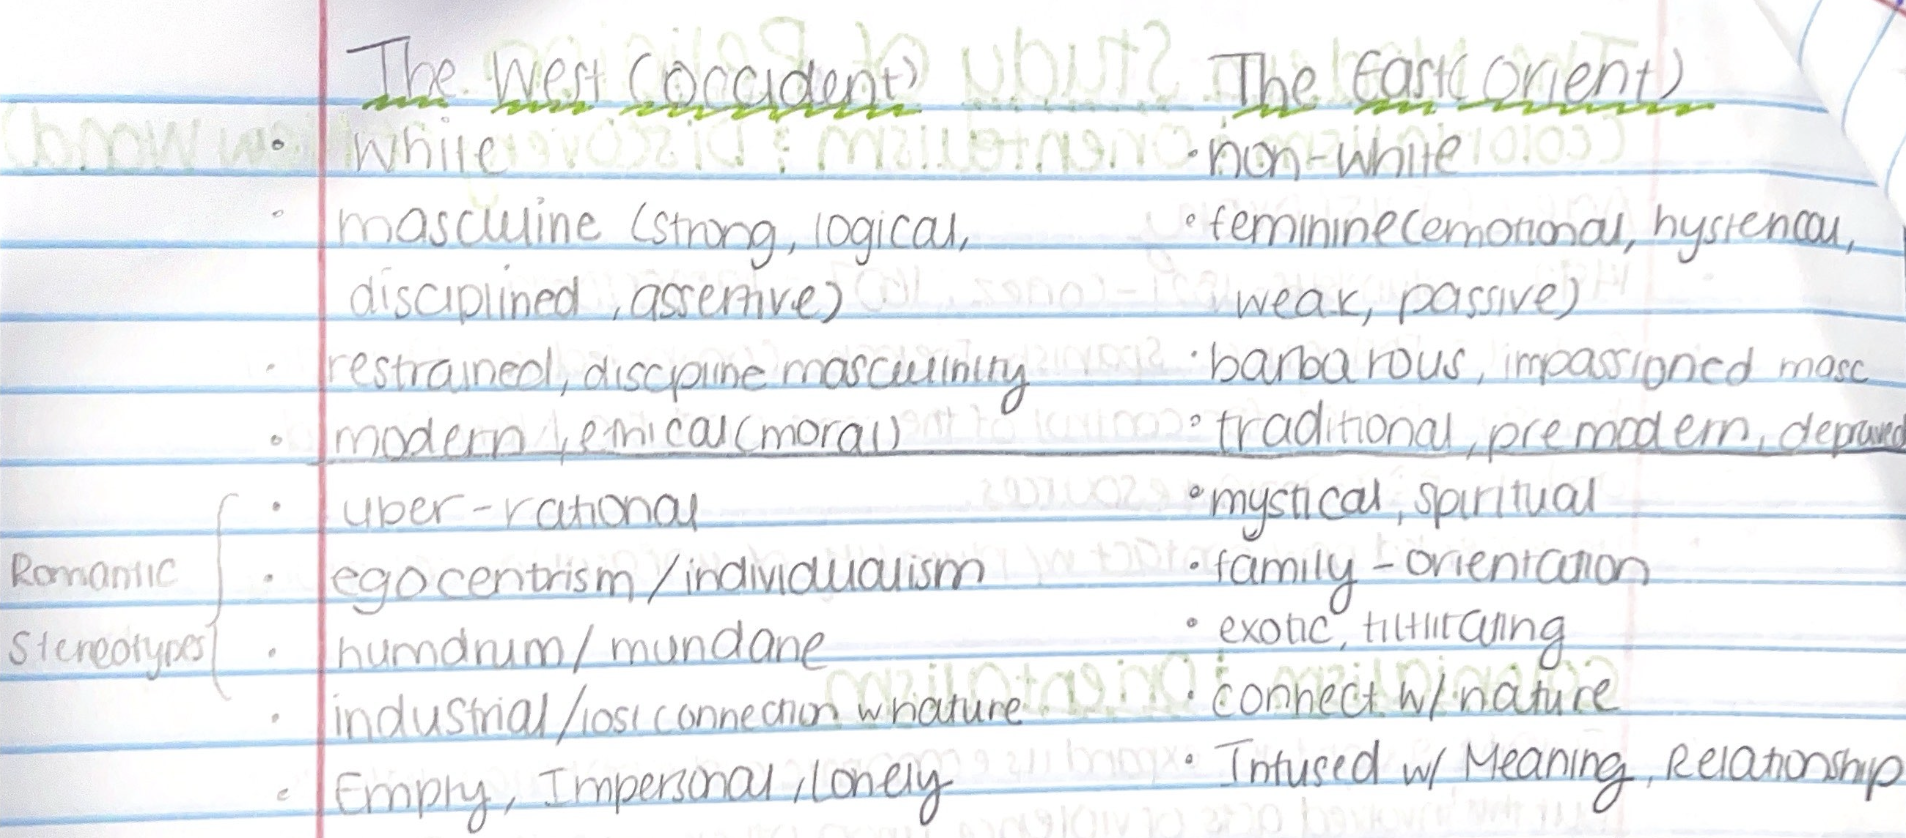 The West (occident) The East (orient)
• white • non-white
• masculine (strong, logical, • feminine (emotional, hysterical,
disciplined, assertive) weak, passive)
• restrained, discipline masculinity • barbarous, impassioned masc
• modern, ethical (moral) • traditional, premodern, depraved
• uber-rational • mystical, spiritual
Romantic • egocentrism/individualism • family-orientation
Stereotypes • humdrum/mundane • exotic,
• industrial/lost connection w nature • connect w/ nature
• Empty, Impersonal, lonely • Infused w/ Meaning, Relationship